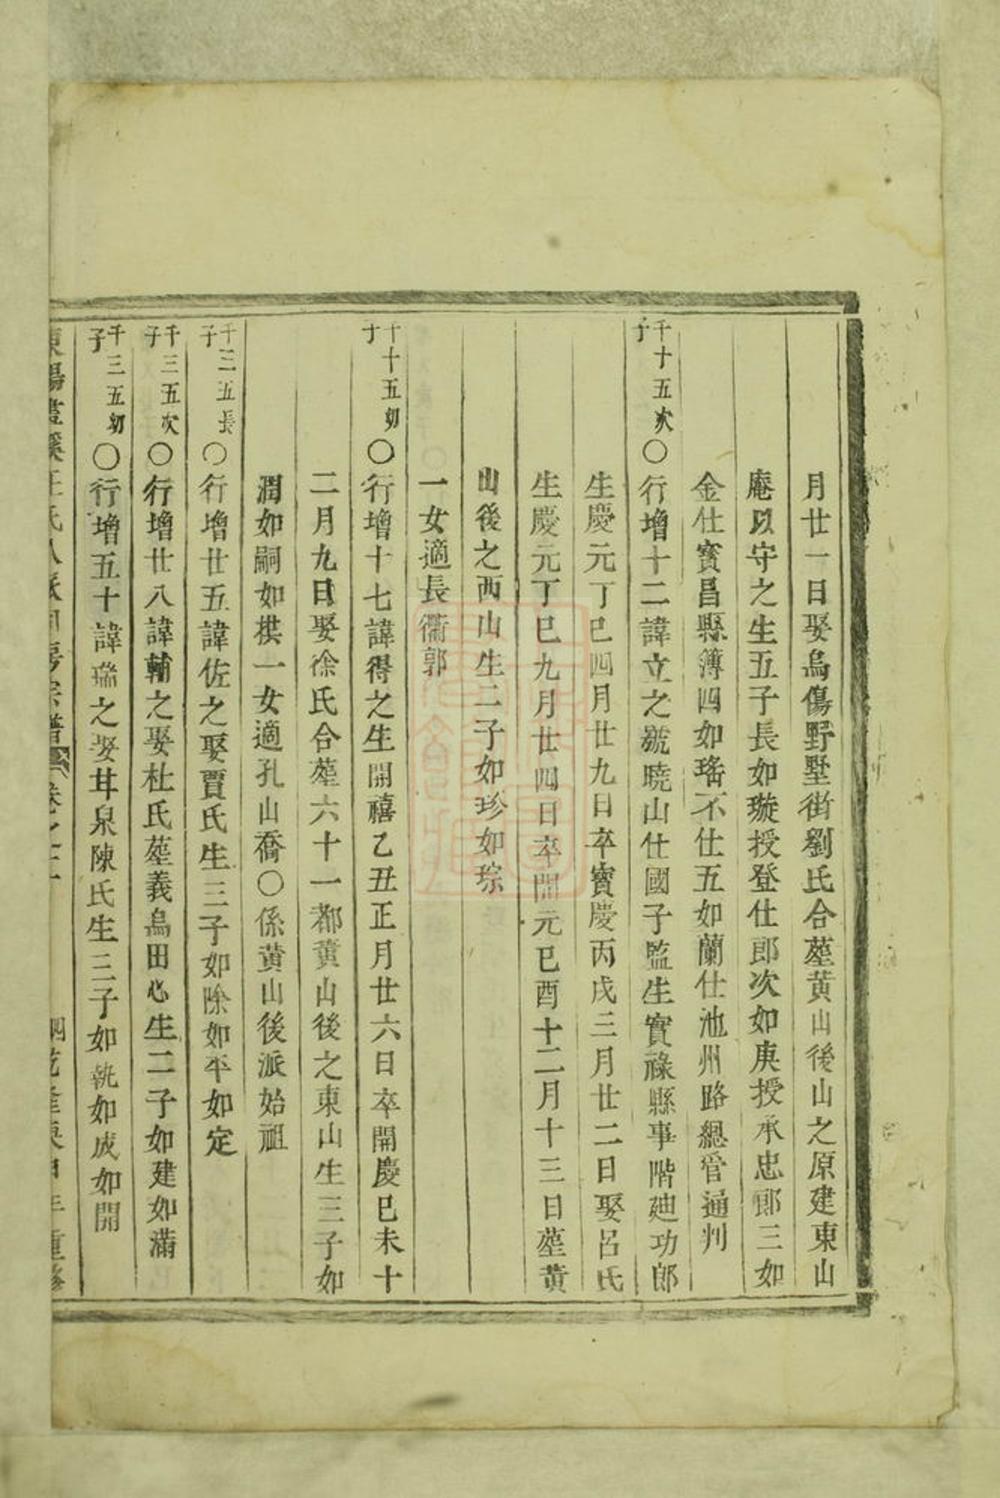 月廿一日娶烏傷野墅街劉氏合塟黃山後山之原建東山
庵以守之生五子長如璇授登仕郎次如庚授承忠郎三如
金仕寳昌縣簿四如瑤不仕五如蘭仕池州路緫管通判
千十五次子〇行增十二諱立之號曉山仕國子監生實祿縣事階廸功郎
生慶元丁巳四月廿九日卒寳慶丙戌三月廿二日娶呂氏
生慶元丁巳九月廿四日卒開元已酉十二月十三日塟黃
山後之西山生二子如珍如琮
一女適長衢郭
千十五幼子〇行增十七諱得之生開禧乙丑正月廿六日卒開慶巳未十
二月九日娶徐氏合塟六十一都黃山後之東山生三子如
潤如嗣如棋一女適孔山喬〇係黃山後派始祖
千三五長子〇行增廿五諱佐之娶賈氏生三子如除如平如定
千三五次子〇行增廿八諱輔之娶杜氏塟義烏田心生二子如建如滿
千三五幼子〇行增五十諱瑞之娶甘泉陳氏生三子如執如成如開